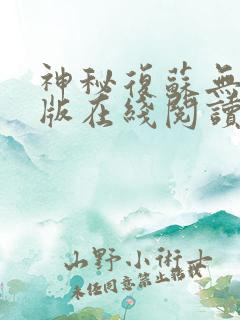 神秘復蘇無
版在綫閱讀
山野小術士
未經同意禁止轉載